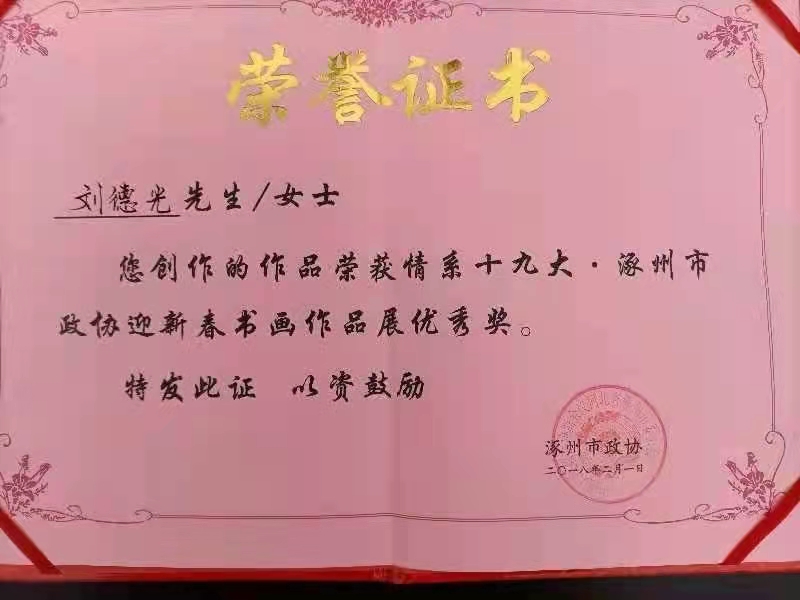 荣誉证书
刘德光先生/女士
您创作的作品荣获情系十九大·涿州市
政协迎新春书画作品展优秀奖。
特发此证 以资鼓励
涿州市政协
二〇一八年二月一日